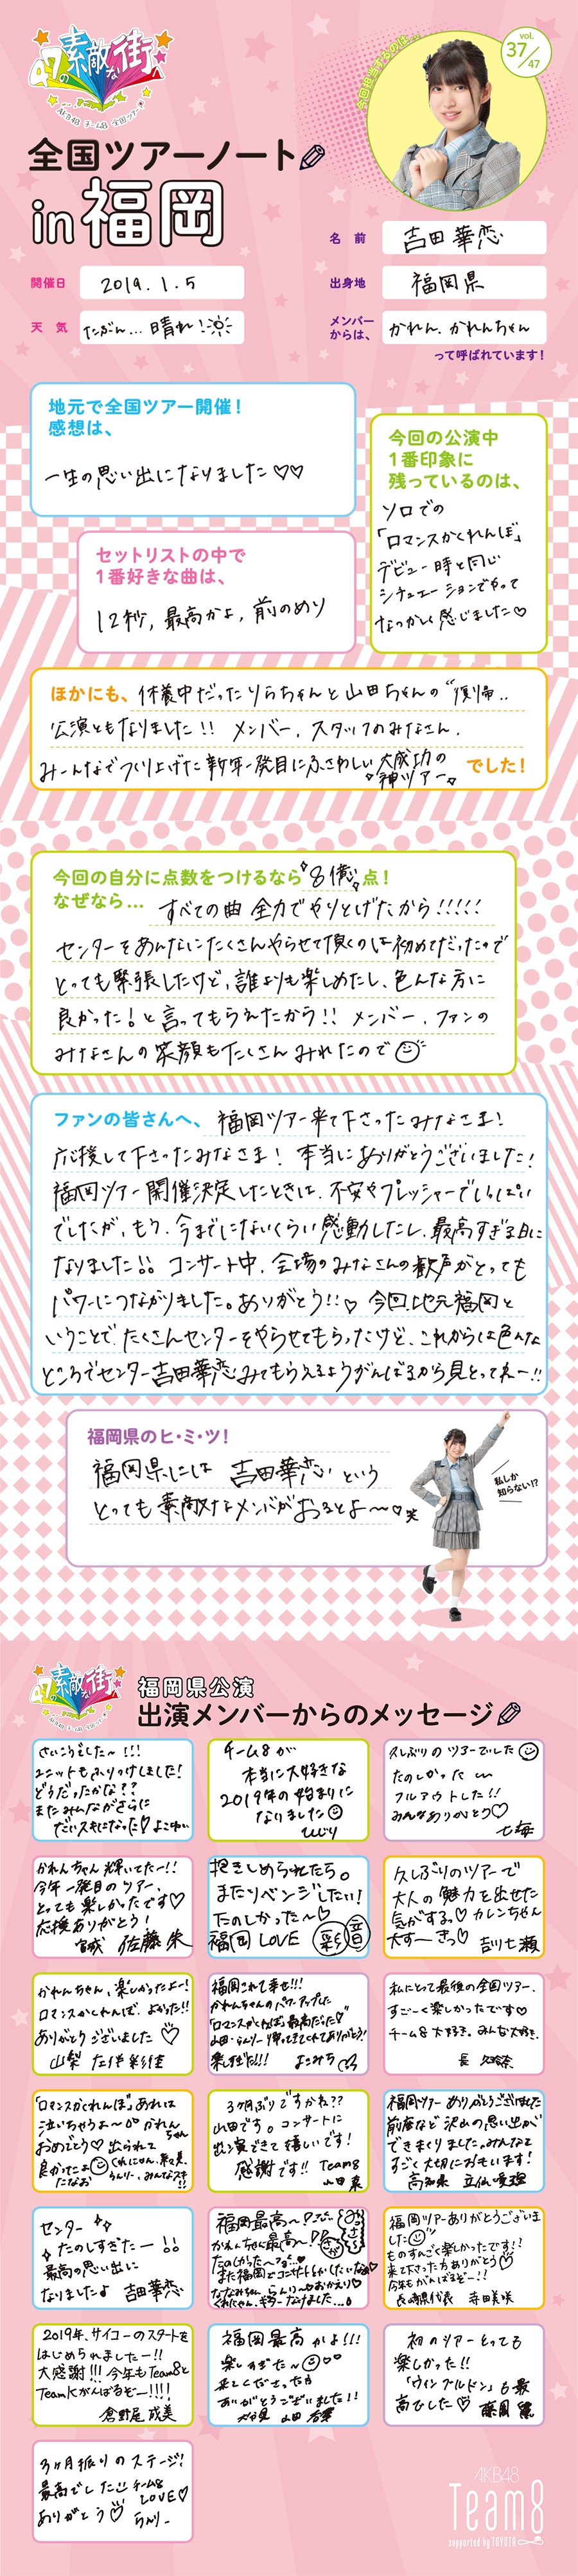 47の素敵な街へ
AKB48 チーム8 全国ツアー
今回担当するのは…
vol.
37/47
全国ツアーノート
in 福岡
名 前 吉田華恋
開催日 2019.1.5
出身地 福岡県
天 気 たぶん…晴れ!
メンバー
からは、 かれん、かれんちゃん
って呼ばれています!
地元で全国ツアー開催!
感想は、
一生の思い出になりました♡♡
今回の公演中
1番印象に
残っているのは、
ソロでの
「ロマンスかくれんぼ」
デビュー時と同じ
シチュエーションでやって
なつかしく感じました♡
セットリストの中で
1番好きな曲は、
12秒, 最高かよ, 前のめり
ほかにも、 休養中だったりらちゃんと山田ちゃんの"復帰..
公演ともなりました!! メンバー、スタッフのみなさん、
みーんなでつくり上げた新年一発目にふさわしい大成功の
神ツアー でした!
今回の自分に点数をつけるなら 8億 点!
なぜなら… すべての曲 全力でやりとげたから!!!!!
センターをあんなにたくさんやらせて頂くのは初めてだったので
とっても緊張したけど、誰よりも楽しめたし、色んな方に
良かった!と言ってもらえたから!! メンバー、ファンの
みなさんの笑顔もたくさんみれたので
ファンの皆さんへ、 福岡ツアー来て下さったみなさま!
応援して下さったみなさま! 本当にありがとうございました!
福岡ツアー開催決定したときは、不安やプレッシャーでいっぱい
でしたが、もう、今までにないくらい感動したし、最高すぎる日に
なりました!! コンサート中、会場のみなさんの歓声がとっても
パワーにつながりました。ありがとう!!♡ 今回、地元福岡と
いうことでたくさんセンターをやらせてもらったけど、これからは色んな
ところでセンター吉田華恋みてもらえるようがんばるから見とってねー!!
福岡県のヒ・ミ・ツ!
福岡県には 吉田華恋 という
とっても素敵なメンバがおるとよ〜♡笑
私しか
知らない!?
47の素敵な街へ
AKB48 チーム8 全国ツアー
福岡県公演
出演メンバーからのメッセージ
さいこうでした〜!!!
ユニットもふりつけしました!
どうだったかな??
またみんながさらに
だいスキになった! よこゆい
チーム8が
本当に大好きな
2019年の始まりに
なりました
ひじり
久しぶりのツアーでした
たのしかった
フルアウトした!!
みんなありがとう♡
七海
かれんちゃん輝いてたー!!
今年一発目のツアー、
とっても楽しかったです♡
応援ありがとう!
宮城 佐藤朱
抱きしめられたら。
またリベンジしたい!
たのしかった〜♡
福岡 LOVE 彩音
久しぶりのツアーで
大人の魅力を出せた
気がする。♡カレンちゃん
大すーきっ♡ 吉川七瀬
かれんちゃん、楽しかったよー!
ロマンスかくれんぼ、よかった!!
ありがとうございました♡
山梨 左伴彩佳
福岡これて幸せ!!!
かれんちゃんのパワーアップした
「ロマンスかくれんぼ」最高だった♡
山田・らんりー帰ってきてくれてありがとう!
楽しすぎた!!! よこみち
私にとって最後の全国ツアー、
すごーく楽しかったです♡
チーム8大好き。みんな大好き。
長 久玲奈
「ロマンスかくれんぼ」あれは
泣いちゃうよ〜 かれん
ちゃん
おめでとう♡ 出られて
良かったよ
たなお
3ヶ月ぶりですかね??
山田です。コンサートに
出演できて嬉しいです!
感謝です!! Team8
福岡ツアーありがとうございました
前座など沢山の思い出が
できまくりました。みんなと
すごく大切におもいます!
高知県 立仙愛理
センター
たのしすぎたー!!
最高の思い出に
なりましたよ 吉田華恋
福岡最高〜!
かれんちゃん最高〜!
たのしかった〜
また福岡でコンサートしたいなぁ
福岡ツアーありがとうございま
した
ものすんごく楽しかったです!!
来て下さった方ありがとう♡
今年もがんばるぞー!!
長崎県代表 寺田美咲
2019年、サイコーのスタートを
はじめられましたー!!
大感謝!!! 今年もTeam8と
TeamKがんばるぞー!!!!
倉野尾成美
福岡最高かよ!!!
楽しすぎた〜
来てくださった方
ありがとうございました!!
大分県 山田杏華
初のツアーとっても
楽しかった!!
「ウィンブルドン」も最
高でした♡ 藤園麗
3ヶ月振りのステージ!
最高でした チーム8
LOVE♡
ありがとう♡ らんりー
AKB48
Team8
supported by TOYOTA